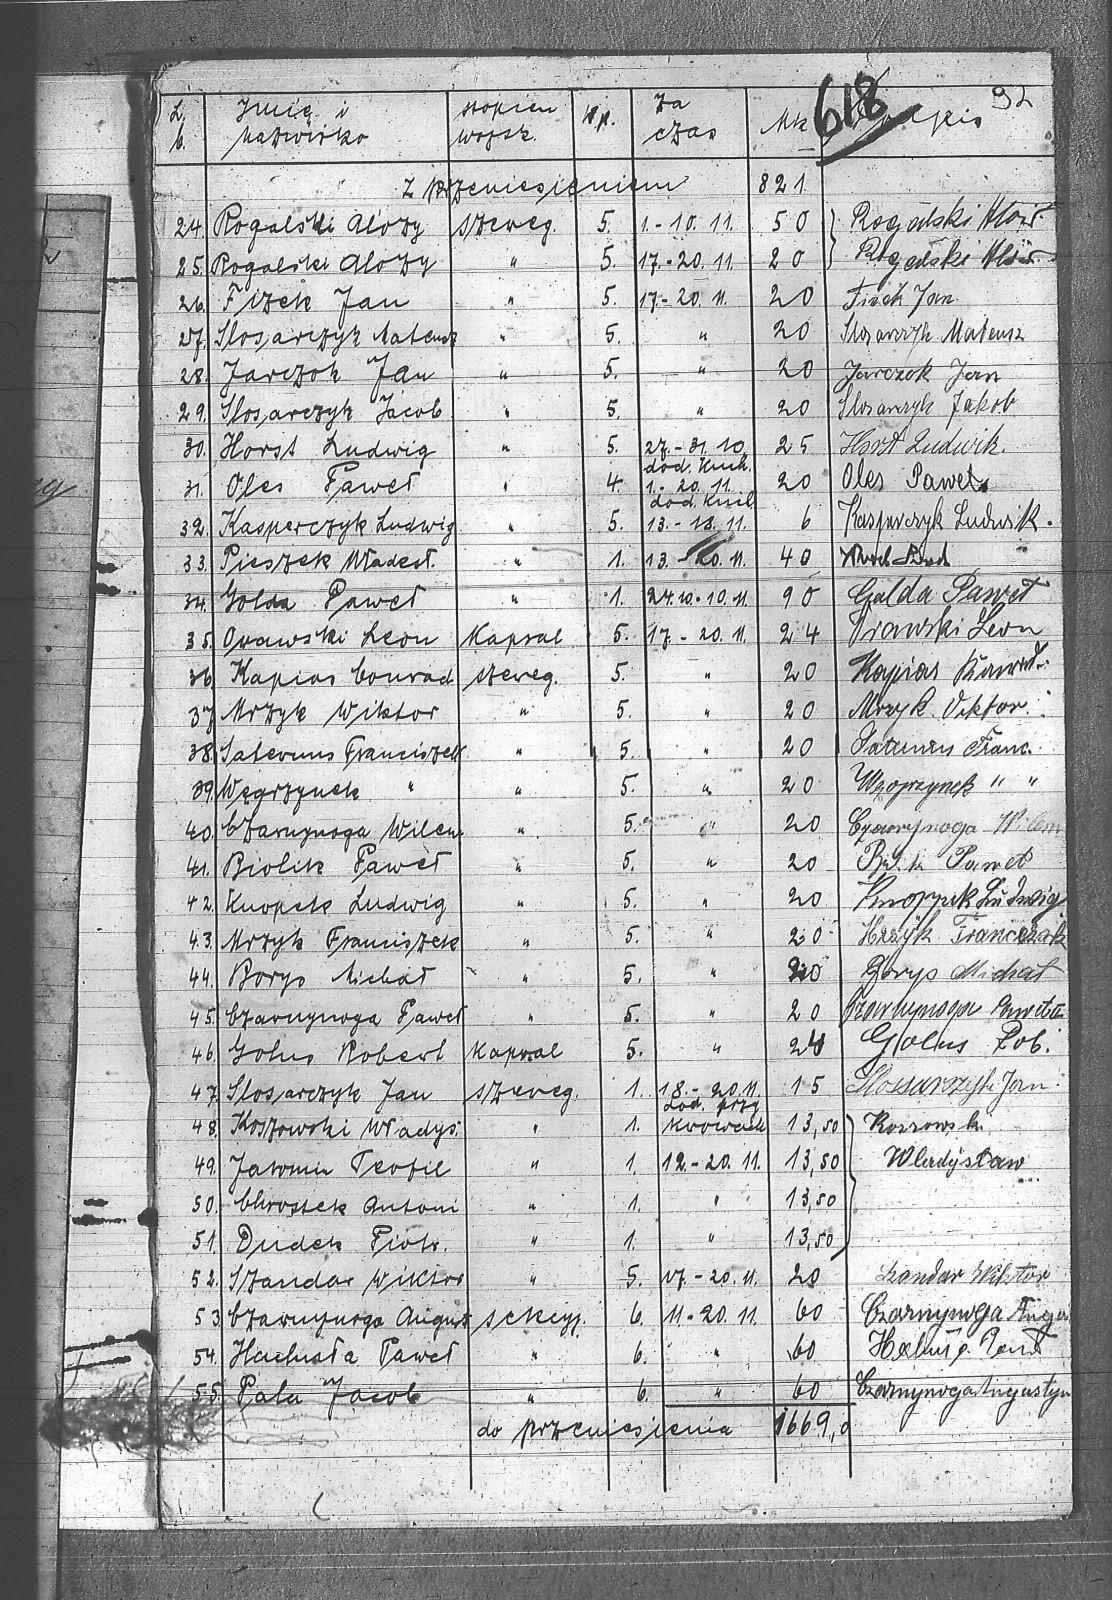 92
618
L. b. Imię i nazwisko stopień wojsk. Kp. Za czas Mk Podpis
Z przeniesieniem 821
24. Rogalski Alozy szereg. 5. 1.-10. 11. 50 Rogalski Alois
25. Rogalski Alozy " 5. 17.-20. 11. 20 Rogalski Alois
26. Fizek Jan " 5. 17.-20. 11. 20 Fizek Jan
27. Slosarczyk Mateusz " 5. " 20 Slosarczyk Mateusz
28. Jarczok Jan " 5. " 20 Jarczok Jan
29. Slosarczyk Jacob " 5. " 20 Slosarczyk Jakob
30. Horst Ludwig " 5. 27.-31. 10. 25 Horst Ludwik.
dod. kuch.
31. Oles Paweł " 4. 1.-20. 11. 20 Oles Paweł
dod. kuch.
32. Kasperczyk Ludwig " 5. 13.-18. 11. 6 Kasperczyk Ludwik.
33. Pieszek Władesł. " 1. 13.-20. 11. 40
34. Golda Paweł " 1. 24.10.-10. 11. 90 Galda Paweł
35. Orawski Leon Kapral 5. 17.-20. 11. 24 Orawski Leon
36. Kapias Conrad szereg. 5. " 20 Kapias
37. Mrzyk Wiktor " 5. " 20 Mrzyk Viktor.
38. Saternus Franciszek " 5. " 20 Franc.
39. Węgrzynek " " 5. " 20 Węgrzynek " "
40. Czarnynoga Wilem " 5. " 20 Czarnynoga Wilem
41. Biolik Paweł " 5. " 20 Paweł
42. Knopek Ludwig " 5. " 20 Ludwig
43. Mrzyk Franciszek " 5. " 20 Mrzyk
44. Borys Michał " 5. " 20 Borys Michał
45. Czarnynoga Paweł " 5. " 20 Czarnynoga
46. Golus Robert kapral 5. " 24 Golus Rob.
47. Slosarczyk Jan szereg. 1. 18.-20. 11. 15 Jan
dod. przy
48. Koszowski Władys. " 1. krowach 13,50
49. Jaromin Teofil " 1. 12.-20. 11. 13,50 Władysław
50. Chrostek Antoni " 1. " 13,50
51. Dudek Piotr. " 1. " 13,50
52. Szandar Wiktor " 5. 17.-20. 11. 20 Szandar Wiktor
53. Czarnynoga August 6. 11.-20. 11. 60 Czarnynoga
54. Hachuła Paweł " 6. " 60
55. Pala Jacob " 6. " 60 Czarnynoga Augustyn
do przeniesienia 1669,0